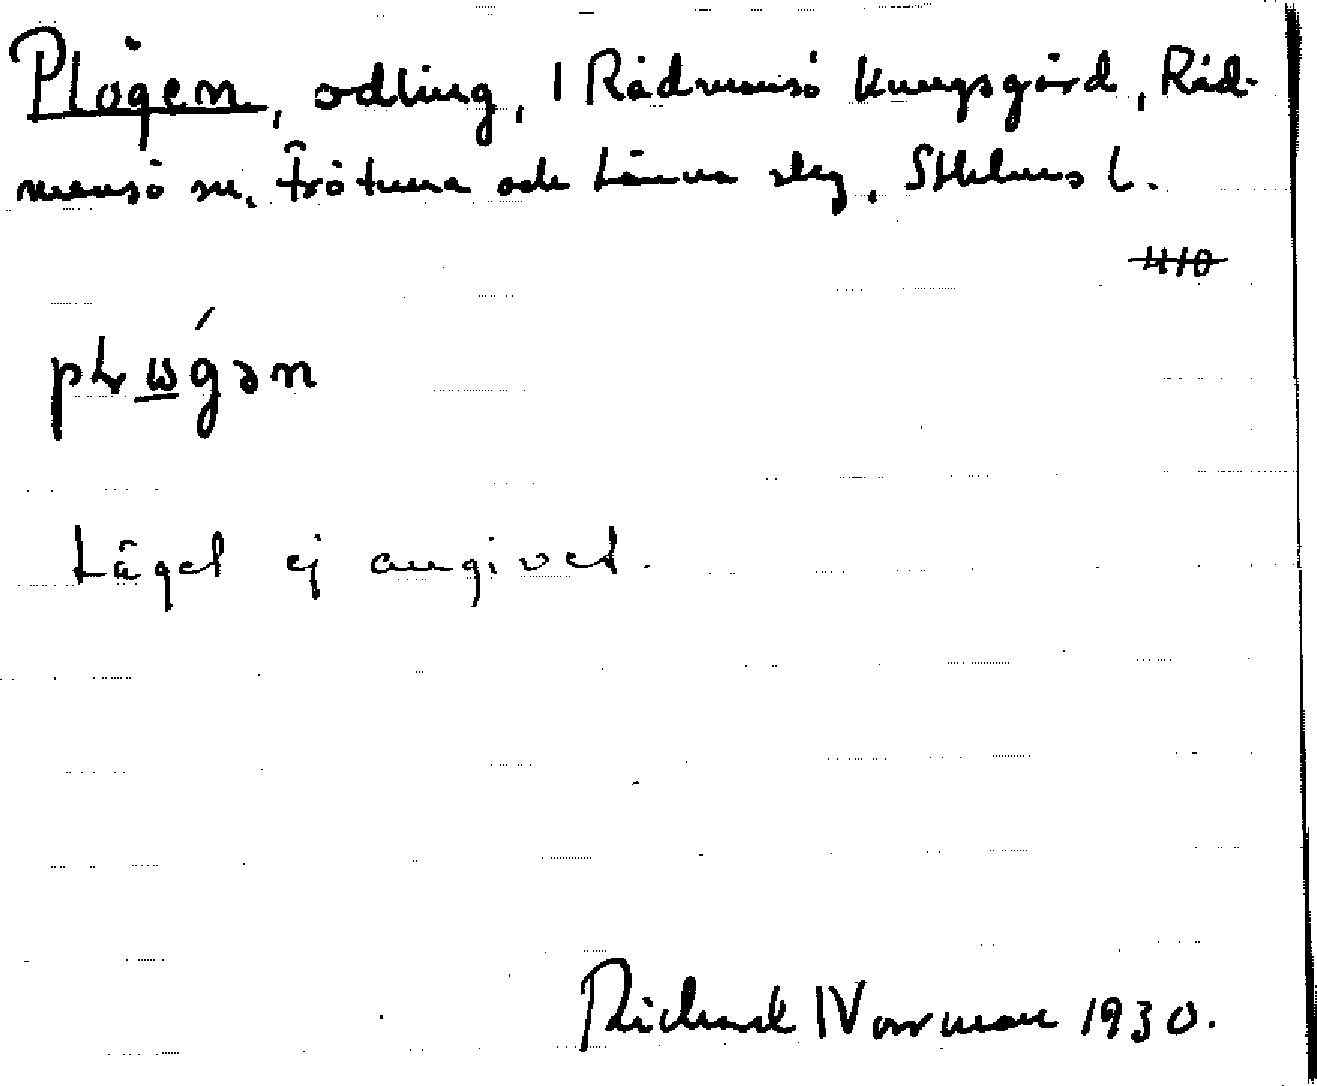 Plogen, odling, 1 Rådmansö kungsgård, Råd-
mansö sn, Frötuna och Länna slg, Sthlms l.
410
Läget ej angivet.
Richard Norrman 1930.